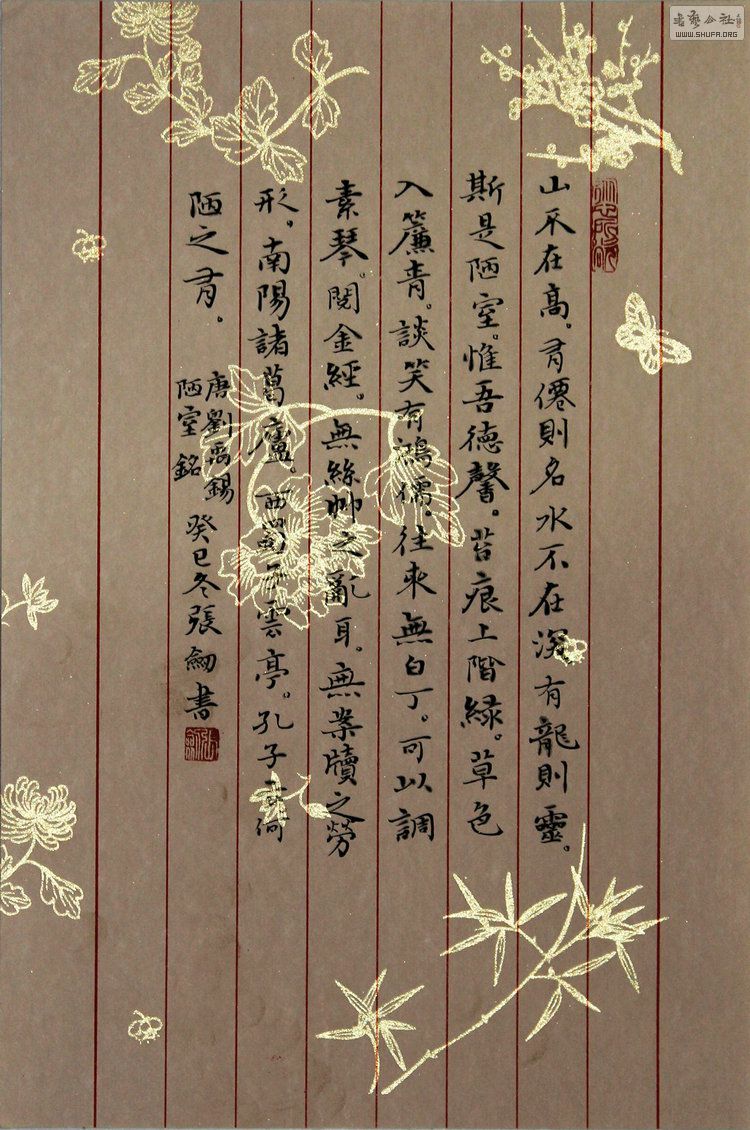 书艺公社
WWW.SHUFA.ORG
山不在高。有僊則名水不在深有龍則靈。
斯是陋室。惟吾德馨。苔痕上階緑。草色
入簾青。談笑有鴻儒。往來無白丁。可以調
素琴。閱金經。無絲竹之亂耳。無案牘之勞
形。南陽諸葛廬。西蜀子雲亭。孔子云何
陋之有。
唐劉禹錫
陋室銘
癸巳冬張書